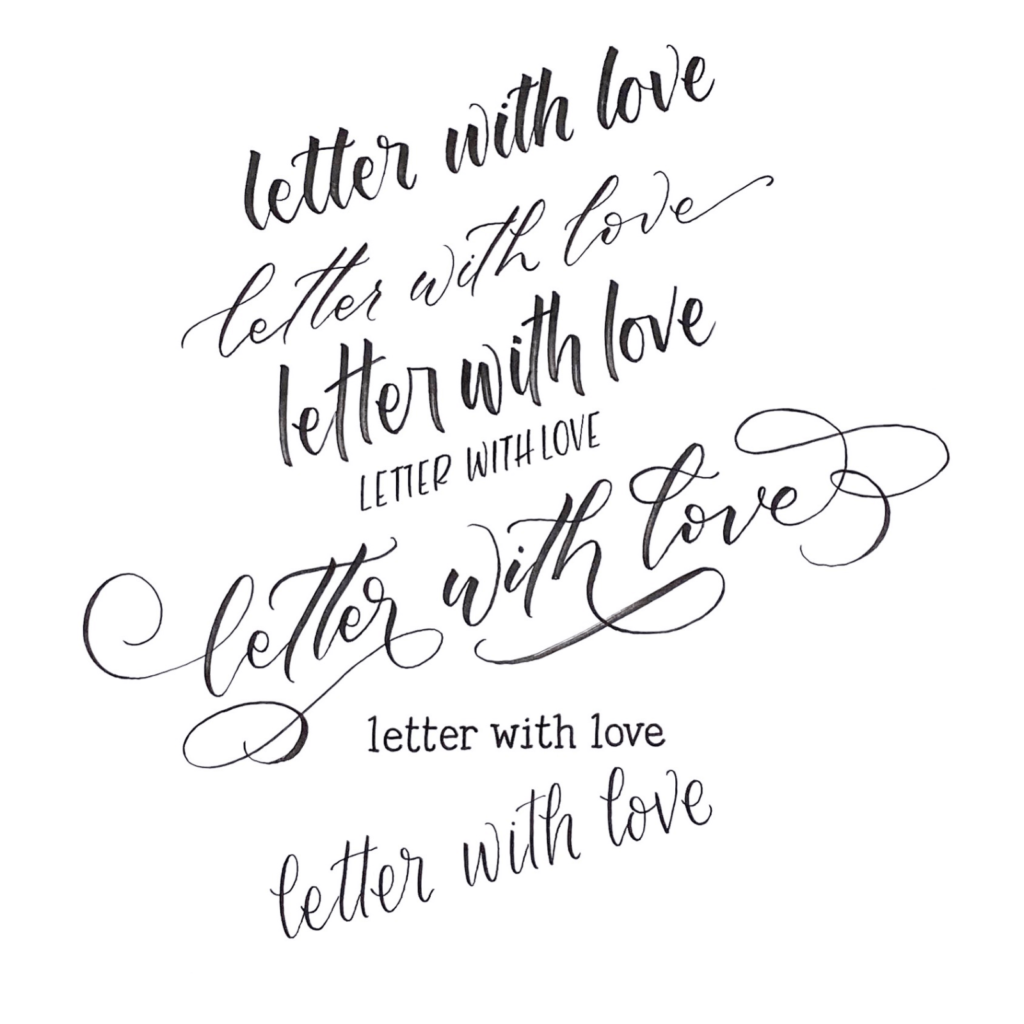 letter with love
letter with love
letter with love
LETTER WITH LOVE
letter with love
letter with love
letter with love